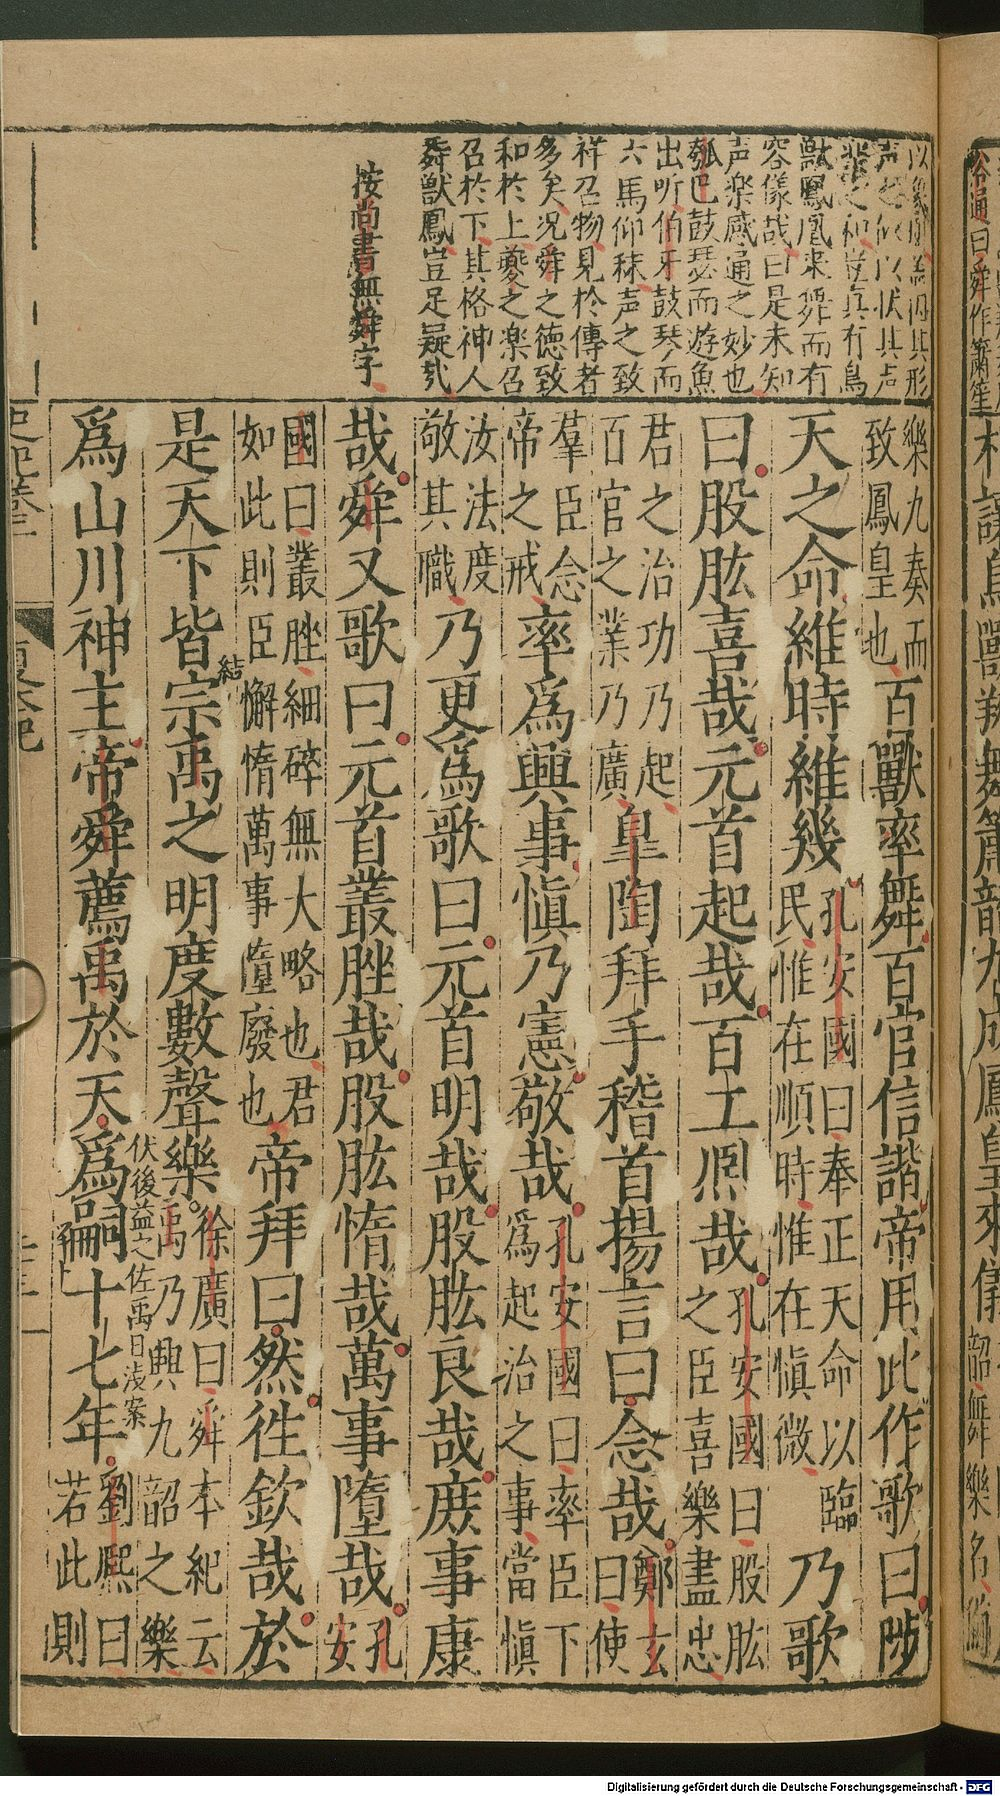 其形
以状其声
之和豈真有鳥
獸鳳凰来舞而有
容儀哉曰是未知
声楽感通之妙也
瓠巴鼓瑟而遊魚
出听伯牙鼓琴而
六馬仰秣声之致
祥召物見於傳者
多矣况舜之德致
和於上夔之楽召
召於下其格神人
舞獣鳳豈足疑哉
按尚書無舜字
樂九奏而
致鳳皇也
百獸率舞百官信諧帝用此作歌曰陟
天之命維時維幾
孔安國曰奉正天命以臨
民惟在順時惟在慎微
乃歌
曰股肱喜哉元首起哉百工熈哉
孔安國曰股肱
之臣喜樂盡忠
君之治功乃起
百官之業乃廣
皐陶拜手稽首揚言曰念哉
鄭玄
曰使
羣臣念
帝之戒
率爲興事慎乃憲敬哉
孔安國曰率臣下
爲起治之事當慎
汝法度
敬其職
乃更爲歌曰元首明哉股肱良哉庶事康
哉舜又歌曰元首叢脞哉股肱惰哉萬事墮哉
孔
安
國曰叢脞細碎無大略也君
如此則臣懈惰萬事墮廢也
帝拜曰然徃欽哉於
是天下皆宗禹之明度數聲樂
結
徐廣曰舜本紀云
禹乃興九韶之樂
伏後益之佐禹曰淺案
爲山川神主帝舜薦禹於天爲嗣十七年
劉熈曰
若此則